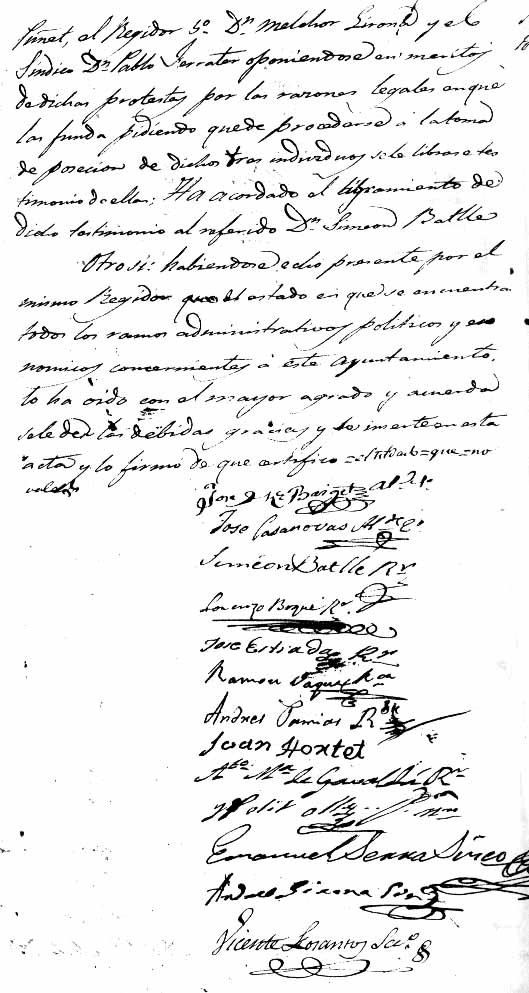 Piñet, el Regidor 5º Dn Melchor Girona y el
Sindico Dn Pablo Serrater oponiendose en meritos
de dichas protestas por las razones legales en que
las funda pidiendo quede procederse á la toma
de posecion de dichos tres individuos se le librase tes
timonio de ellas; Ha acordado el libramiento de
dicho testimonio al referido Dn Simeon Batlle
Otrosi: habiendose echo presente por el
mismo Regidor que el estado en que se encuentra
todos los ramos administrativos politicos y eco
nomicos concernientes á este ayuntamiento,
lo ha oido con el mayor agrado y acuerda
se le den las debidas gracias y se inserte en esta
acta y lo firmó de que certifico = = que = no
valdan
Jose Casanovas Alde
Simeon Batlle Rr
Lorenzo Boqué Rr
Jose Estrada Rr
Ramon Vaque Ror
Andres Tamias Ror
Joan Hortet
Anto Ma de Gavaldá Rr
Emanuel Serra Sinco
Andres Girona
Vicente Losantos Scio